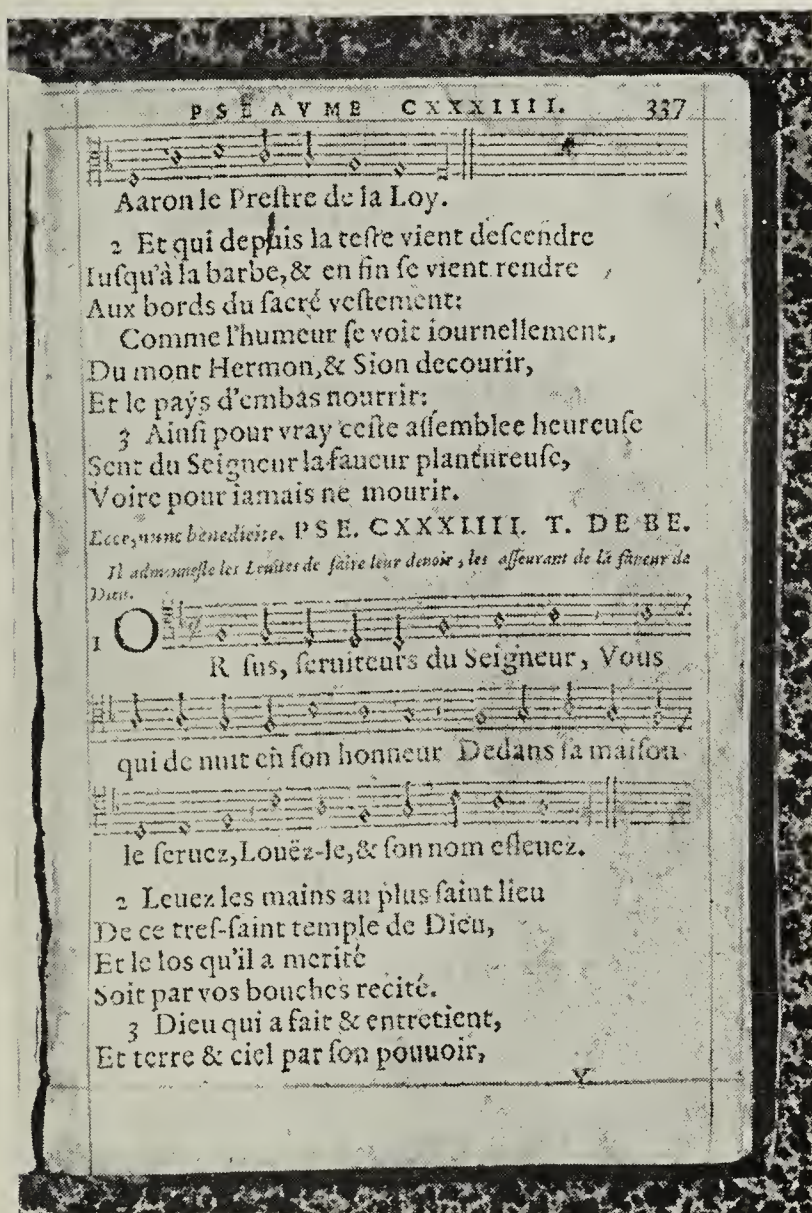 PSEAVME CXXXIIII. 337
Aaron le Preſtre de la Loy.
2 Et qui depuis la teſte vient deſcendre
Iuſqu'à la barbe, & en fin ſe vient rendre
Aux bords du ſacré veſtement:
Comme l'humeur ſe voit iournellement,
Du mont Hermon, & Sion decourir,
Et le païs d'embas nourrir:
3 Ainſi pour vray ceſte aſſemblee heureuſe
Sent du Seigneur la faueur plantureuſe,
Voire pour iamais ne mourir.
Ecce, nunc benedicite. PSE. CXXXIIII. T. DE BE.
Il admonneſte les Leuites de faire leur deuoir, les aſſeurant de la faueur de
Dieu.
1 O
R ſus, ſeruiteurs du Seigneur, Vous
qui de nuit en ſon honneur Dedans ſa maiſon
le ſeruez, Louëz-le, & ſon nom eſleuez.
2 Leuez les mains au plus ſaint lieu
De ce treſ-ſaint temple de Dieu,
Et le los qu'il a merité
Soit par vos bouches recité.
3 Dieu qui a fait & entretient,
Et terre & ciel par ſon pouuoir,
Y